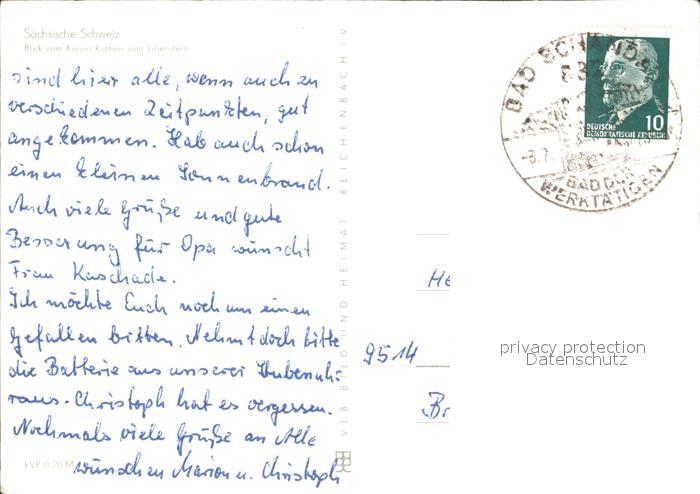 Sächsische Schweiz
Blick vom Kurort Rathen zum Lilienstein
sind hier alle, wenn auch zu
verschiedenen Zeitpunkten, gut
angekommen. Hab auch schon
einen kleinen Sonnenbrand.
Auch viele Grüße und gute
Besserung für Opa wünscht
Frau Kaschade.
Ich möchte Euch noch um einen
Gefallen bitten. Nehmt doch bitte
die Batterie aus unserer Stubenuhr
raus. Christoph hat es vergessen.
Nochmals viele Grüße an Alle
wünschen Marion u. Christoph
EVP 0,20 M
VEB BILD UND HEIMAT REICHENBACH I. V.
BAD SCHANDAU
832
-8.7.
BAD DER
WERKTÄTIGEN
10
DEUTSCHE
DEMOKRATISCHE REPUBLIK
He
9514
Br
privacy protection
Datenschutz